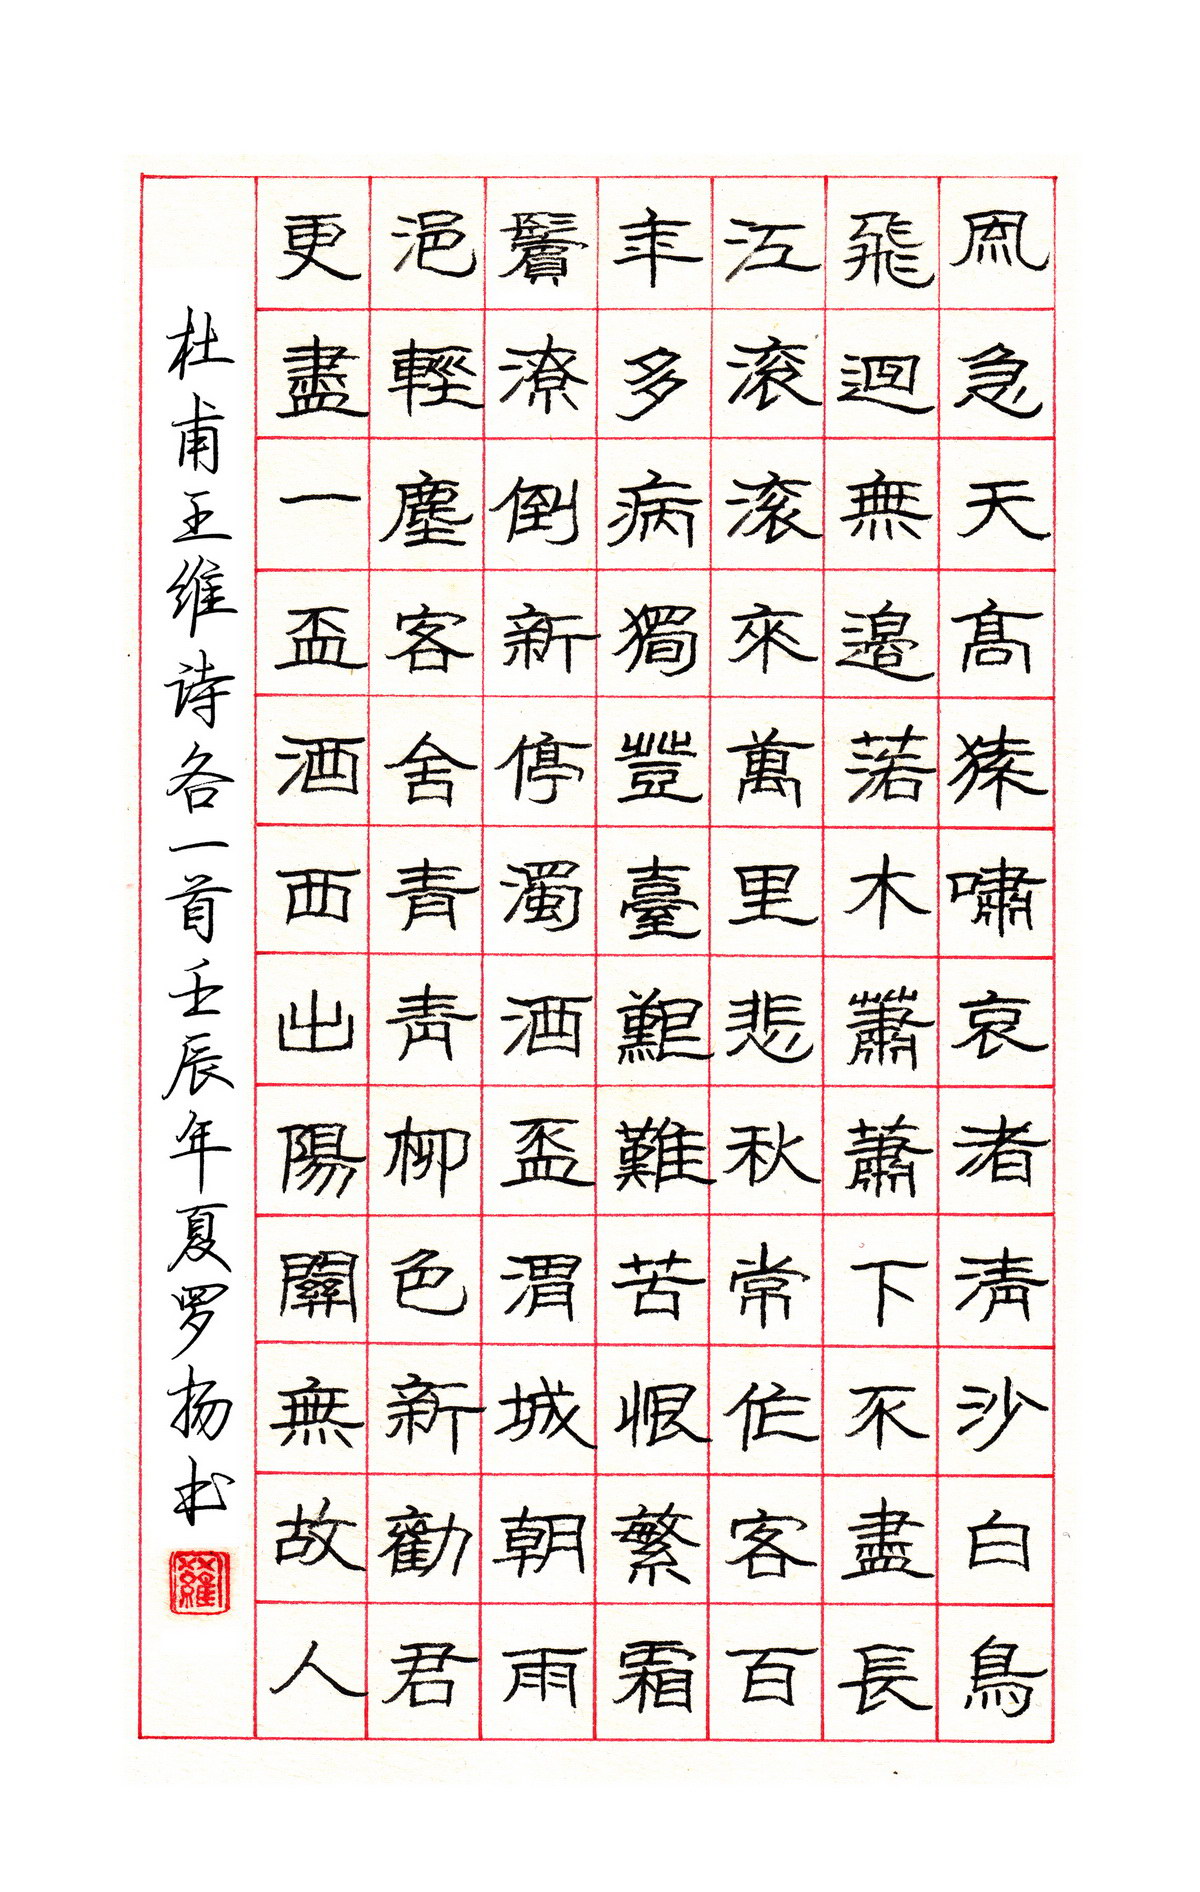 風急天髙猿嘯哀渚清沙白鳥
飛迴無邊落木蕭蕭下不盡長
江滚滚來萬里悲秋常作客百
年多病獨登臺艱難苦恨繁霜
鬢潦倒新停濁酒盃渭城朝雨
浥輕塵客舍青青柳色新勸君
更盡一盃酒西出陽關無故人
杜甫王维诗各一首壬辰年夏罗扬书
羅